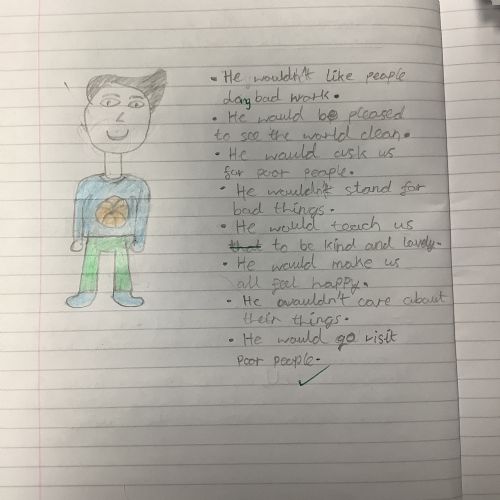 • He wouldn't like people
doing bad work.
• He would be pleased
to see the world clean.
• He would ask us
for poor people.
• He wouldn't stand for
bad things.
• He would teach us
that to be kind and lovely.
• He would make us
all feel happy.
• He wouldn't care about
their things.
• He would go visit
poor people.